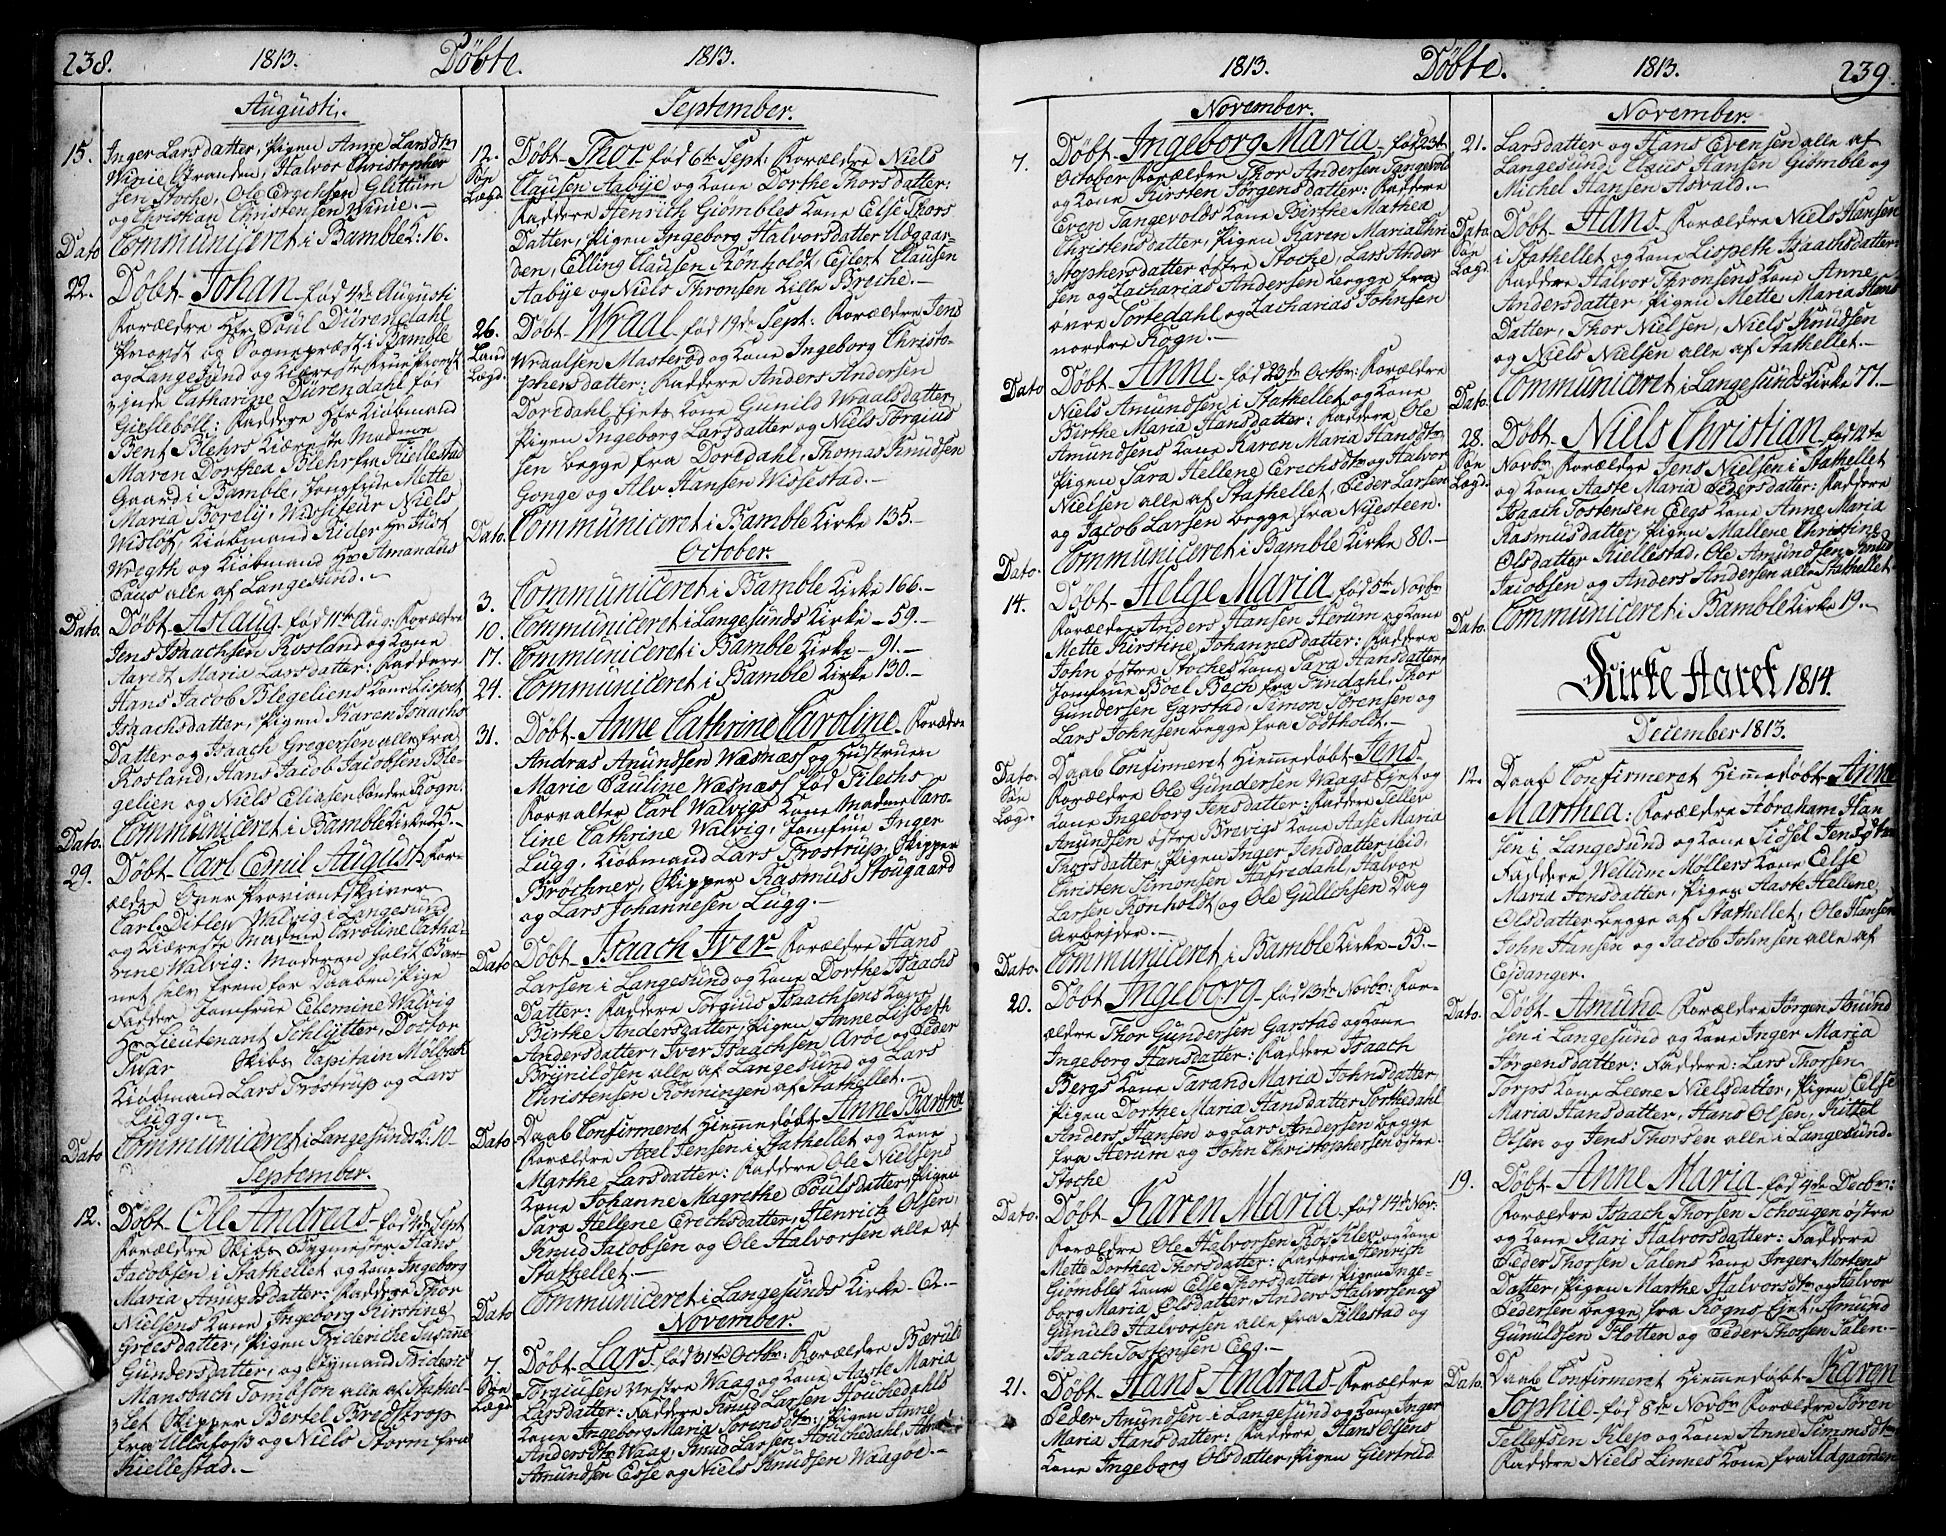 238. 1813. Döbte. 1813.
Augusti.
15. Inger Larsdatter, Pigen Anne Larsdtr
Winie Stranden, Halvor Christopher
sen Stoche, Ole Erichsen Glittum
og Christian Christensen Winie.-
Dato Communiceret i Bamble K: 16.
22. Döbt Johan fód 4de Augusti
Forældre Hr Poul Dürendahl
Provst og Sognepræst i Bamble
og Langesund og Kiæreste Frue Provst
inde Catharine Dürendahl fód
Gislebôll: Faddere Hr Kiöbmand
Bent Blehrs Kiæreste Madme
Maren Dorthea Blehr fra Kiellestad
Gaard i Bamble, Jomfrue Mette
Maria Borely, Wissiteur Niels
Widlöf, Kiöbmand Rider Hr Just
Wregth og Kiöbmand Hr Amandus
Paus alle af Langesund.-
Dato. Döbt Aslaug fód 11te Aug: Forældre
Jens Isaachsen Rosland og Kone
Maria Larsdatter: Faddere
Hans Jacob Blegeliens Kone Lispet
Isaachsdatter, Pigen Karen Isaachs
Datter og Isaach Gregersen alle fra
Rosland, Hans Jacob Jacobsen Ble-
gelien og Niels Eliasen Söndre Rogn:
Dato. Communiceret i Bamble Kirke 25.-
29. Döbt Carl Emil August For-
ældre Over Proviantskriver
Carl Ditlev Walvig i Langesund
og Kiæreste Madme Caroline Catha-
rine Walvig: Moderen holdt Bar-
net selv frem for Daaben, Pige
Fadder Jomfrue Celemine Walvig
Hr Lieutenant Schlÿtter, Doctor
Twar Skibs Capitain Mölbach
Kiöbmand Lars Tröstrup og Lars
Lugg.-
Dato Communiceret i Langesunds K: 10-
September.
12. Döbt Ole Andreas fód 4de Sept
Forældre Skibs Bygmester Hans
Jacobsen i Stathellet og Kone Ingeborg
Maria Amundsdatter: Faddere Thor
Nielsens Kone Ingeborg Kirstine
Greesdatter, Pigen Frideriche Susane
Gundersdatter, og Stÿrmand Frideric
Mansbach Tombson alle af Stathel-
let Skipper Bertel Bredstrop
fra Ullefoss og Niels Storm fra
Kiellestad.-
September.
12. Döbt Thor fód 6te Sept: Forældre Niels
Söe Clausen Aabÿe og Kone Dorthe Thorsdatter:
Lægd Faddere Henrich Giömbles Kone Else Thors
Datter, Pigen Ingeborg Halvorsdatter Udgaar-
den, Elling Clausen Rönholdt Ejlert Clausen
Aabÿe og Niels Thronsen Lille Breche.-
26. Döbt Wraal fód 19de Sept: Forældre Jens
Land Wraalsen Masteröd og Kone Ingeborg Christo-
Lægd. phersdatter: Faddere Anders Andersen
Doredahl Ejets Kone Gunild Wraalsdatter
Pigen Ingeborg Larsdatter og Niels Torgius
sen begge fra Doredahl, Thomas Knudsen
Gonge og Alv Hansen Wissestad.-
Dato. Communiceret i Bamble Kirke 135.-
October.
3. Communiceret i Bamble Kirke 166.-
10. Communiceret i Langesunds Kirke - 59.-
17. Communiceret i Bamble Kirke - 91.-
24. Communiceret i Bamble Kirke 130.-
31. Döbt Anne Cathrine Caroline Forældre
Andras Amundsen Wæsnæs og Hustruen
Marie Pauline Wæsnæs fód Pilechs
Forvalter Carl Walvigs Kone Madme Caro-
line Cathrine Walvig, Jomfrue Inger
Lugg, Kiöbmand Lars Trostrup, Skipper
Bröchner, Skipper Rasmus Stougaard
og Lars Johannesen Lugg.-
Dato Döbt Isaach Iver Forældre Hans
Larsen i Langesund og Kone Dorthe Isaachs
Datter: Faddere Torgius Isaachsens Kone
Birthe Andersdatter, Pigen Anne Lisbeth
Andersdatter, Iver Isaachsen Aröe og Peder
Brÿnildsen alle af Langesund og Lars
Christensen Rönningen af Stathellet.-
Dato Daab Confirmeret Hiemmedöbt Anne Barbroe
Forældre Axel Jensen i Stathellet og Kone
Marthe Larsdatter: Faddere Ole Nielsens
Kone Johanne Magrethe Poulsdatter, Pigen
Sara Hellene Erichsdatter, Henrich Olsen,
Knud Jacobsen og Ole Halvorsen alle af
Stathellet.-
Dato Communiceret i Langesunds Kirke - 62.-
November.
7. Döbt Lars fód 31te Octbr: Forældre Bærule
Söe Torgiusen Vestre Waag og Kone Aaste Maria
Lægd Larsdatter: Faddere Knud Larsen Houchedahls
Kone Ingeborg Maria Sörensdtr, Pigen Anne
Andersdtr Waag, Knud Larsen Houchedahl,
Amundsen Esse og Niels Knudsen Waagöe.-
1813. Döbte. 1813. 239.
November.
7. Döbt Ingeborg Maria fód 23t
October Forældre Thor Andersen Tangevold
og Kone Kirsten Jörgensdatter: Faddere
Even Tangevolds Kone Birthe Mathea
Christensdatter, Pigen Karen Maria Chri
stophersdatter östre Stoche, Lars Ander
sen og Zacharias Andersen begge fra
övre Tortedahl og Zacharias Johnsen
nordre Rogn.-
Dato Döbt Anne fód 23de Octbr: Forældre
Niels Amundsen i Stathellet og Kone
Birthe Maria Hansdatter: Faddere Ole
Amundsens Kone Karen Maria Hansdtr
Pigen Sara Hellene Erichsdtr og Halvor
Nielsen alle af Stathellet, Peder Larsen
og Jacob Larsen begge fra Nÿesteen.
Dato. Communiceret i Bamble Kirke 80.-
14. Döbt Helge Maria fód 5te Novbr
Forældre Anders Hansen Herum og Kone
Mette Kirstine Johannesdatter: Faddere
John östre Stoches Kone Sara Hansdatter,
Jomfrue Boel Bech fra Findahl, Thor
Gundersen Garstad, Simon Sörensen og
Lars Johnsen begge fra Tostholt.-
Dato. Daab Confirmeret Hiemmedöbt Jens
Söe Forældre Ole Gundersen Waags Ejet og
Lægd. Kone Ingeborg Jensdatter: Faddere Tellev
Amundsen östre Brevigs Kone Aase Maria
Thorsdatter, Pigen Inger Jensdatter ibid,
Christen Simonsen Hafredahl, Halvor
Larsen Rönholdt og Ole Gullichsen Dag
Arbejder.-
Dato. Communiceret i Bamble Kirke - 55.-
20. Döbt Ingeborg fód 13de Novbr: For-
ældre Thor Gundersen Garstad og Kone
Ingeborg Hansdatter: Faddere Isaach
Bergs Kone Tarand Maria Johnsdatter,
Pigen Dorthe Maria Hansdatter Tortedahl
Anders Hansen og Lars Andersen begge
fra Herum og John Christophersen östre
Stoche
Dato. Döbt Karen Maria fód 14de Nov:
Forældre Ole Halvorsen Rossklev og Kone
Mette Dorthea Thorsdatter: Faddere Henrich
Giömbles Kone Else Thorsdatter, Pigen Inge-
borg Maria Olsdatter, Anders Halvorsen og
Gunuld Halvorsen alle fra Tillestad og
Isaach Tostensen Eeg.-
21. Döbt Hans Andreas Forældre
Peder Amundsen i Langesund og Kone Inger
Maria Hansdatter: Faddere Hans Olsens
Kone Ingeborg Olsdatter, Pigen Giertrud
November
21. Larsdatter og Hans Evensen alle af
Langesund, Claus Hansen Giömble og
Michel Hansen Asvald.-
Dato Döbt Hans Forældre Niels Hansen
Söe i Stathellet og Kone Lispeth Isaachsdatter:
Lægd. Faddere Halvor Thronsens Kone Anne
Andersdatter, Pigen Mette Maria Hans
Datter, Thor Nielsen, Niels Knudsen
og Niels Nielsen alle af Stathellet.-
Dato. Communiceret i Langesunds Kirke 77.-
28. Döbt Niels Christian fód 12te
Söe Novbr Forældre Jens Nielsen i Stathellet
Lægd. og Kone Aaste Maria Pedersdatter: Faddere
Isaach Tostensen Eegs Kone Anne Maria
Rasmusdatter, Pigen Mallene Christine
Olsdatter Kiellestad, Ole Amundsen, Knud
Jacobsen og Anders Andersen alle Stathellet
Dato. Communiceret i Bamble Kirke 19.-
Kirke Aaret 1814.
December 1813.
12. Daab Confirmeret Hiemmedöbt Anne
Marthea: Forældre Abraham Han
sen i Langesund og Kone Sidsel Jensdtr
Faddere Wellum Möllers Kone Eelse
Maria Jensdatter, Pigen Aaste Hellene
Olsdatter begge af Stathellet, Ole Hansen
John Hansen og Jacob Johnsen alle af
Ejdanger.
Dato. Döbt Amund Forældre Jörgen Amund
sen i Langesund og Kone Inger Maria
Jörgensdatter: Faddere: Lars Thorsen
Torps Kone Leene Nielsdatter, Pigen Eelse
Maria Hansdatter, Hans Olsen, Kittel
Olsen og Jens Thorsen alle i Langesund.
19. Döbt Anne Maria fód 4de Decbr:
Forældre Isaach Thorsen Schougen östre
og Kone Kari Halvorsdatter: Faddere
Peder Thorsen Salens Kone Inger Mortens
Datter, Pigen Marthe Halvorsdtr og Halvor
Pedersen begge fra Rogns Ejet, Amund
Gunuldsen Flotten og Peder Thorsen Salen.-
Dato. Daab Confirmeret Hiemmedöbt Karen
Sophie fód 8de Novbr Forældre Sören
Tellefsen Klep og Kone Anne Simonsdtr,
Faddere Niels Linnes Kone fra Udgaarden